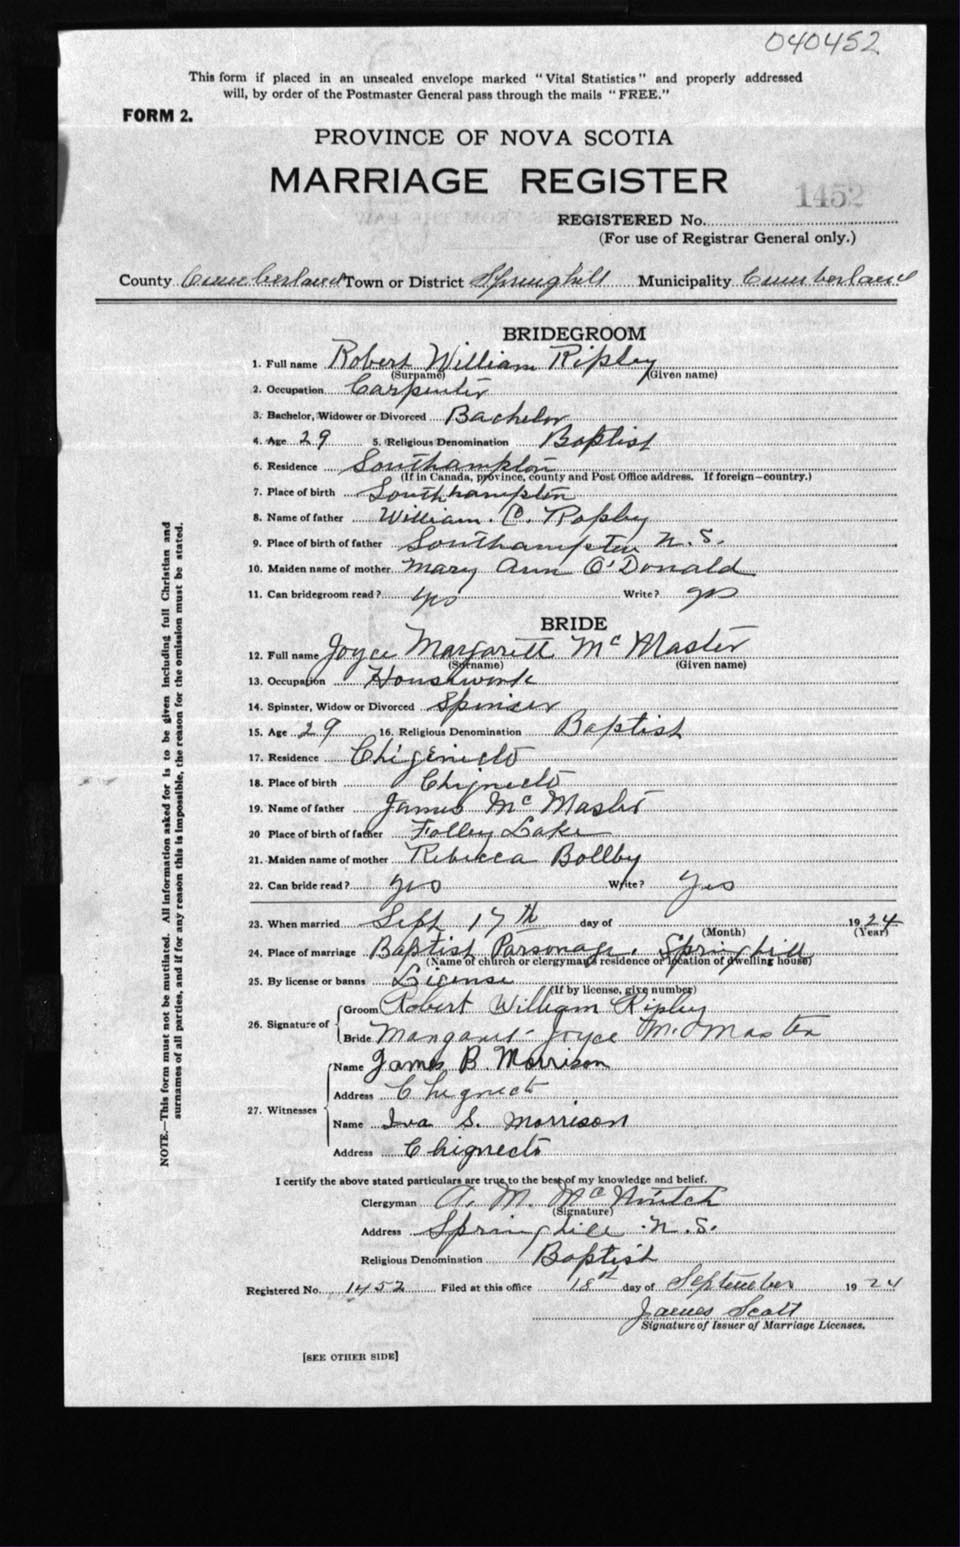 040452
This form if placed in an unsealed envelope marked "Vital Statistics" and properly addressed
will, by order of the Postmaster General pass through the mails "FREE."
FORM 2.
PROVINCE OF NOVA SCOTIA
MARRIAGE REGISTER
1452
REGISTERED No.
(For use of Registrar General only.)
County Cumberland Town or District Springhill Municipality Cumberland
BRIDEGROOM
1. Full name Robert William Ripley
(Surname) (Given name)
2. Occupation Carpenter
3. Bachelor, Widower or Divorced Bachelor
4. Age 29 5. Religious Denomination Baptist
6. Residence Southampton
(If in Canada, province, county and Post Office address. If foreign—country.)
7. Place of birth Southhampton
8. Name of father William. C. Ropley
9. Place of birth of father Southampton N. S.
10. Maiden name of mother Mary Ann O'Donald
11. Can bridegroom read? yes Write? yes
BRIDE
12. Full name Joyce Margarett Mc Master
(Surname) (Given name)
13. Occupation Housework
14. Spinster, Widow or Divorced Spinser
15. Age 29 16. Religious Denomination Baptist
17. Residence Chigenicto
18. Place of birth Chignecto
19. Name of father James Mc Master
20 Place of birth of father Folley Lake
21. Maiden name of mother Rebecca Bollby
22. Can bride read? yes Write? Yes
23. When married Sept 17th day of 1924
(Month) (Year)
24. Place of marriage Baptist Parsonage. Springhill
(Name of church or clergyman's residence or location of dwelling house)
25. By license or banns License
(If by license, give number)
26. Signature of Groom Robert William Ripley
Bride Margaret Joyce McMaster
27. Witnesses Name James B. Morrison
Address Chignecto
Name Iva S. Morrison
Address Chignecto
I certify the above stated particulars are true to the best of my knowledge and belief.
Clergyman A. M. Mc
(Signature)
Address Springhill N. S.
Religious Denomination Baptist
Registered No. 1452 Filed at this office 18th day of September 1924
James Scott
Signature of Issuer of Marriage Licenses.
[SEE OTHER SIDE]
NOTE.—This form must not be mutilated. All information asked for is to be given including full Christian and
surnames of all parties, and if for any reason this is impossible, the reason for the omission must be stated.